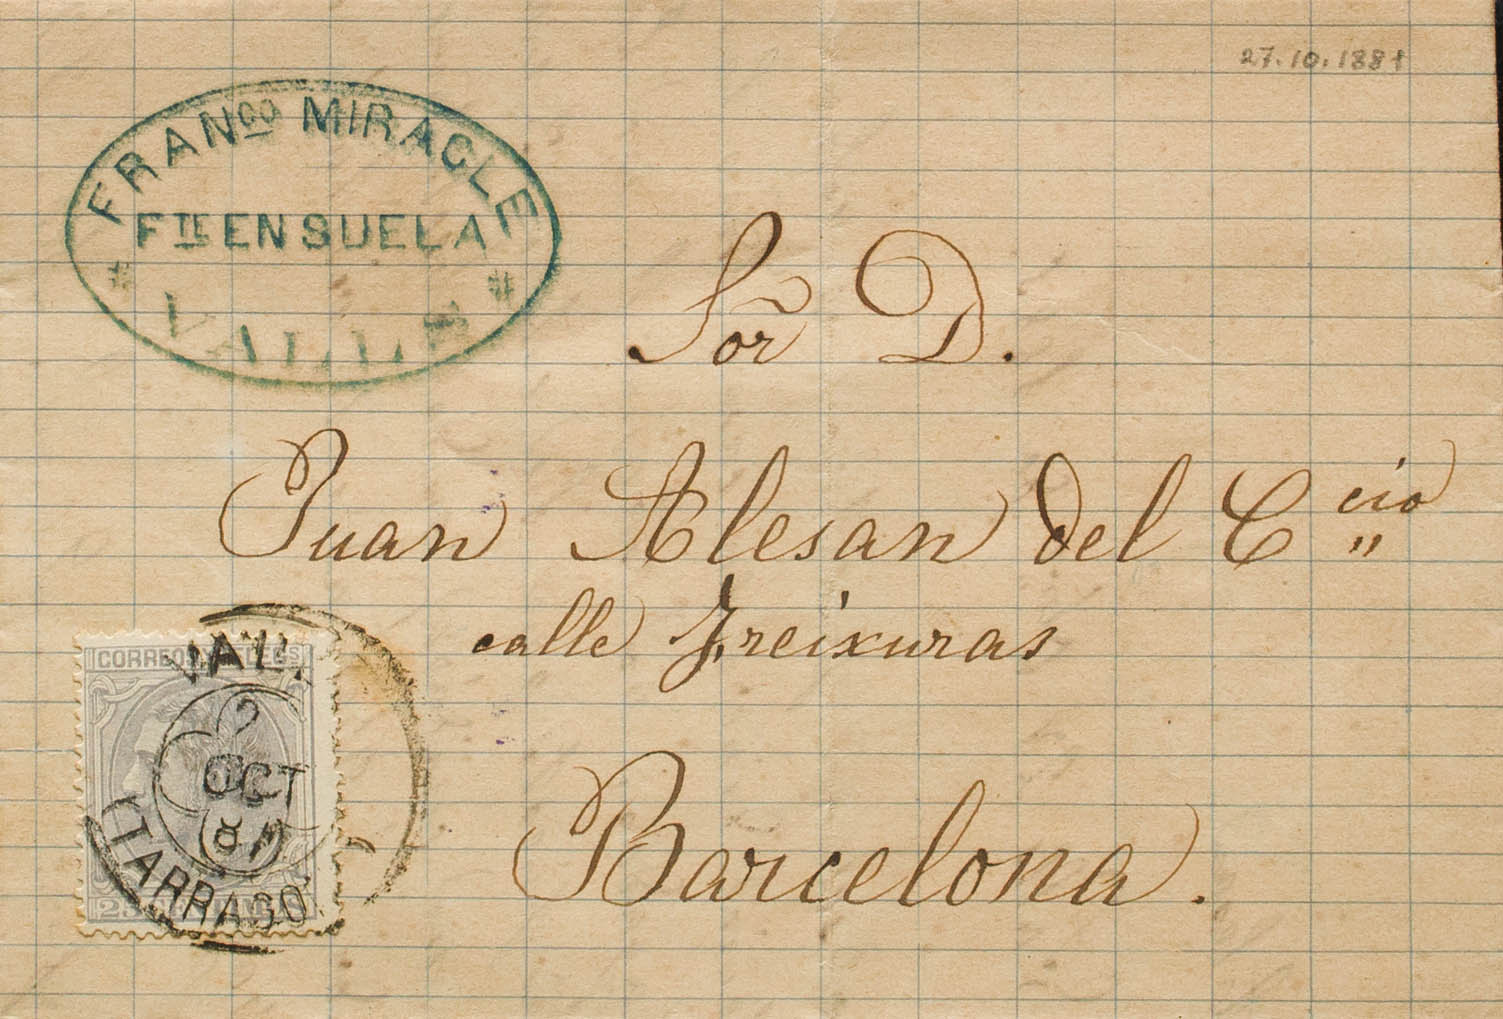 27.10.1881
FRANCO MIRACLE
FTE EN SUELA
VALLS
Sor D.
Juan Alesan del Ccio
calle Freixuras
Barcelona.
CORREOS Y TELEGS
VALL
2
OCT
81
(TARRAGO
25